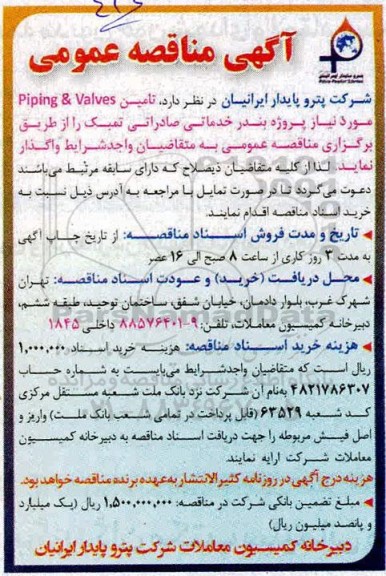 آگهی مناقصه عمومی
شرکت پترو پایدار ایرانیان در نظر دارد، تأمین Piping & Valves
مورد نیاز پروژه بندر خدماتی صادراتی تمبک را از طریق
برگزاری مناقصه عمومی به متقاضیان واجدشرایط واگذار
نماید. لذا از کلیه متقاضیان ذیصلاح که دارای سابقه مرتبط می‌باشند
دعوت می‌گردد تا در صورت تمایل با مراجعه به آدرس ذیل نسبت به
خرید اسناد مناقصه اقدام نمایند.
◄ تاریخ و مدت فروش اسناد مناقصه: از تاریخ چاپ آگهی
به مدت ۳ روز کاری از ساعت ۸ صبح الی ۱۶ عصر
◄ محل دریافت (خرید) و عودت اسناد مناقصه: تهران
شهرک غرب، بلوار دادمان، خیابان شفق، ساختمان توحید، طبقه ششم،
دبیرخانه کمیسیون معاملات، تلفن: ۹-۸۸۵۷۶۴۰۱ داخلی ۱۸۴۵
◄ هزینه خرید اسناد مناقصه: هزینه خرید اسناد ۱,۰۰۰,۰۰۰
ریال است که متقاضیان واجدشرایط می‌بایست به شماره حساب
۴۸۲۱۷۸۶۳۰۷ به‌نام آن شرکت نزد بانک ملت شعبه مستقل مرکزی
کد شعبه ۶۳۵۲۹ (قابل پرداخت در تمامی شعب بانک ملت) واریز و
اصل فیش مربوطه را جهت دریافت اسناد مناقصه به دبیرخانه کمیسیون
معاملات شرکت ارایه نمایند.
هزینه درج آگهی در روزنامه کثیرالانتشار به عهده برنده مناقصه خواهد بود.
◄ مبلغ تضمین بانکی شرکت در مناقصه: ۱,۵۰۰,۰۰۰,۰۰۰ ریال (یک میلیارد
و پانصد میلیون ریال)
دبیرخانه کمیسیون معاملات شرکت پترو پایدار ایرانیان